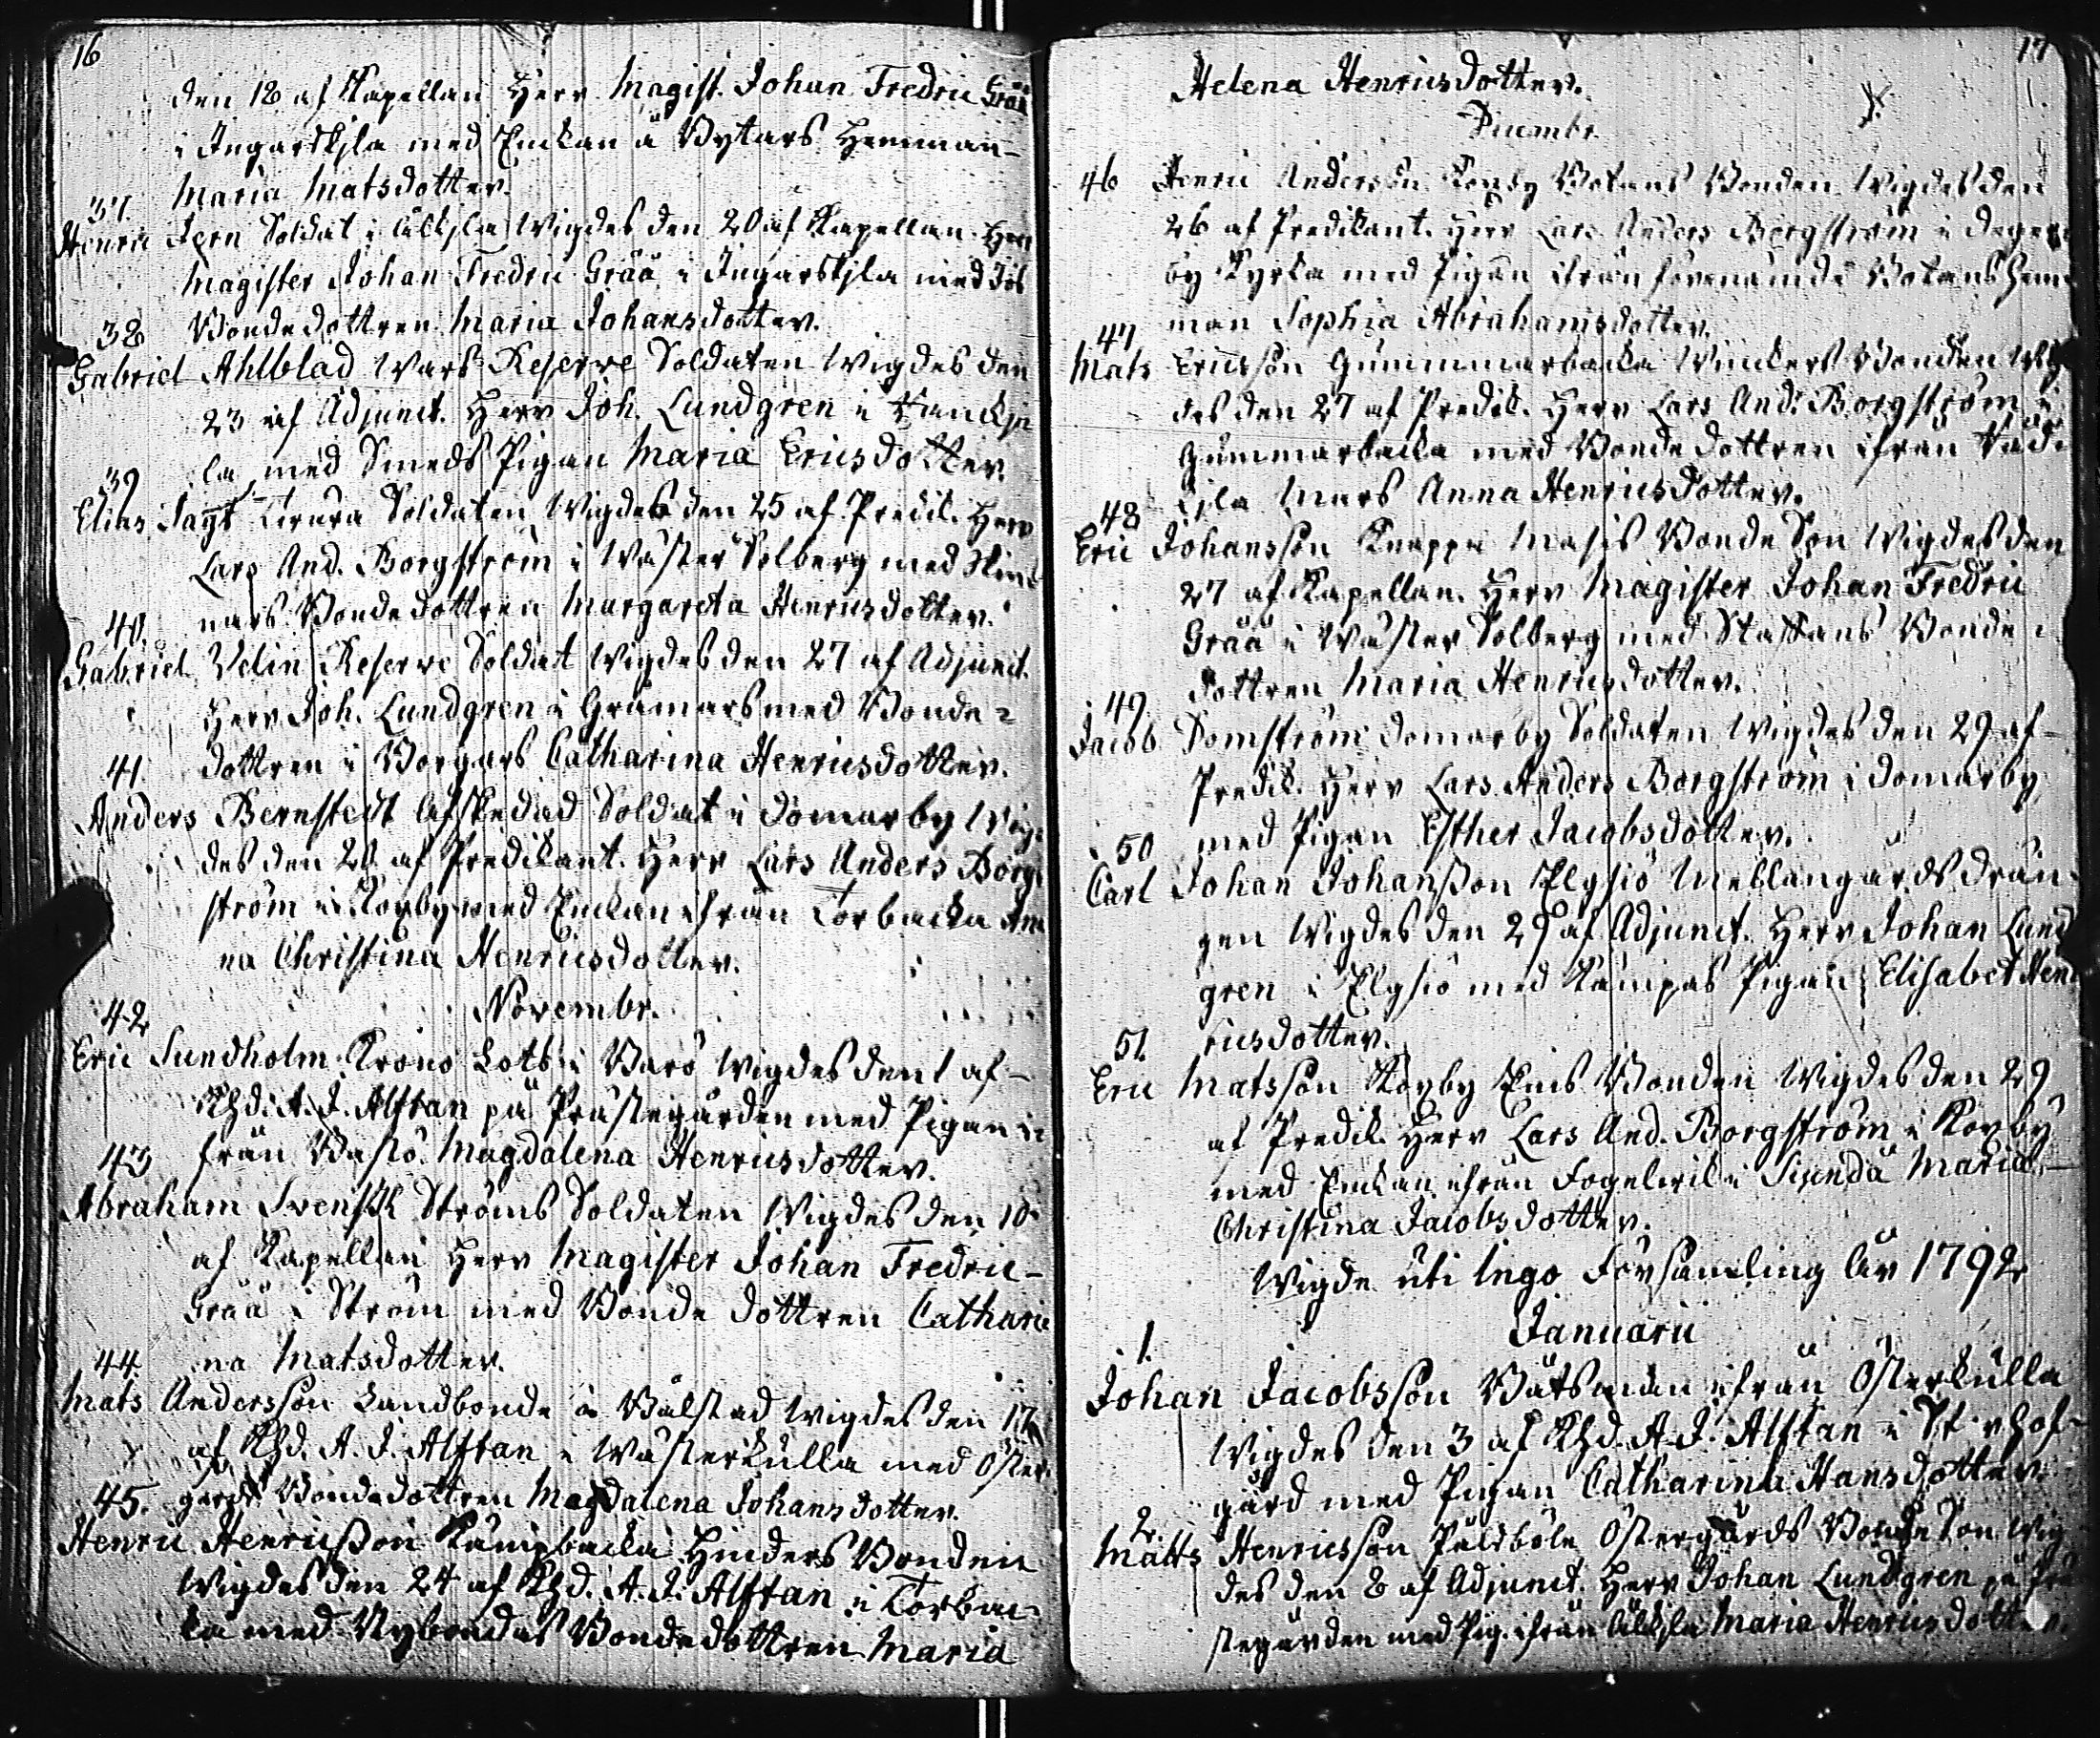 16
den 18 af Kapellan Herr Magist. Johan Fredric Gråå
i Ingarskila med Enkan å Bytars Hemman-
37. Maria Matsdotter.
Henric Jern Soldat i Täckjla Wigdes den 20 af Kapellan Herr
Magister Johan Fredric Gråå i Ingarskjla med
38 Bondedottren Maria Johansdotter.
Gabriel Ahlblad Wars Reserve Soldaten Wigdes den
23 af Adjunct. Herr Joh. Lundgren i
39 la med Smeds Pigan Maria Ericsdotter.
Elias Soldaten Wigdes den 25 af Predik. Herr
Lars And. Borgström i Wäster Solberg med
40. nars Bondedottren Margareta Henricsdotter.
Gabriel Velin Reserve Soldat Wigdes den 27 af Adjunct.
Herr Joh. Lundgren i Gramars med Bonde=
41 dottren i Borgars Catharina Henricsdotter.
Anders Bernstedt afskedad Soldat i Domarby Wig-
des den 28 af Predikant. Herr Lars Anders Borg-
ström i Koxby med Enkan ifrån Torbacka An-
na Christina Henricsdotter.
Novembr.
42
Eric Sundholm Krono Lots i Barö Wigdes den 1 af-
Khd. A. J. Alftan på Prästegården med Pigan i-
43 från Basiö Magdalena Henricsdotter.
Abraham Svensk Ströms Soldaten Wigdes den 10
af Kapellan Herr Magister Johan Fredric-
Gråå i Ström med Bonde dottren Cathari
44. na Matsdotter.
Mats Andersson Landbonde å Bålstad Wigdes den 17
af Khd. A. J. Alftan i Wästerkulla med Öster-
45. gårds Bondedottren Magdalena Johansdotter.
Henric Henricsson Kämpbacka Hinders Bonden
Wigdes den 24 af Khd. A. J. Alftan i Torbac-
ka med Nybondas Bondedottren Maria
17
Helena Henricsdotter.
Decembr.
46 Henric Andersson Koxby Botans Bonden Wigdes den
26 af Predikant. Herr Lars Anders Borgström i Deger-
by Kyrka med Pigan ifrån förenämde Botans Hem-
47 man Sophia Abrahamsdotter.
Mats Ericsson Gummarbacka Winckers Bonden Wig-
des den 27 af Predik. Herr Lars And. Borgström i
Gummarbacka med Bonde dottren ifrån
48 kjla Mars Anna Henricsdotter.
Eric Johansson Knappe Masis Bonde Son Wigdes den
27 af Kapellan. Herr Magister Johan Fredric
Gråå i Wäster Solberg med Staffans Bonde=
49 dottren Maria Henricsdotter.
Jacob Domström Domarby Soldaten Wigdes den 29 af-
Predik. Herr Lars Anders Borgström i Domarby
50 med Pigan Esther Jacobsdotter.
Carl Johan Johansson Elgsiö Mellangårds drän-
gen Wigdes den 29 af Adjunct. Herr Johan Lund
gren i Elgsiö med Kämpas Pigan Elisabet Hen-
51. ricsdotter.
Eric Matsson Koxby Ens Bonden Wigdes den 29
af Predik. Herr Lars And. Borgström i Koxby
med Enkan ifrån Fogelwik i Siundå Maria-
Christina Jacobsdotter.
Wigde uti Ingo Församling år 1792
Januarii
1.
Johan Jacobsson Båtsman ifrån Österkulla
Wigdes den 3 af Khd. A. J. Alftan i hof-
gård med Pigan Catharina Hansdotter
2.
Matts Henricsson Påldböle Östergårds Bonde Son Wig-
des den 8 af Adjunct. Herr Johan Lundgren på Prä-
stegården med Pig. ifrån Täckjla Maria Henricsdotter.